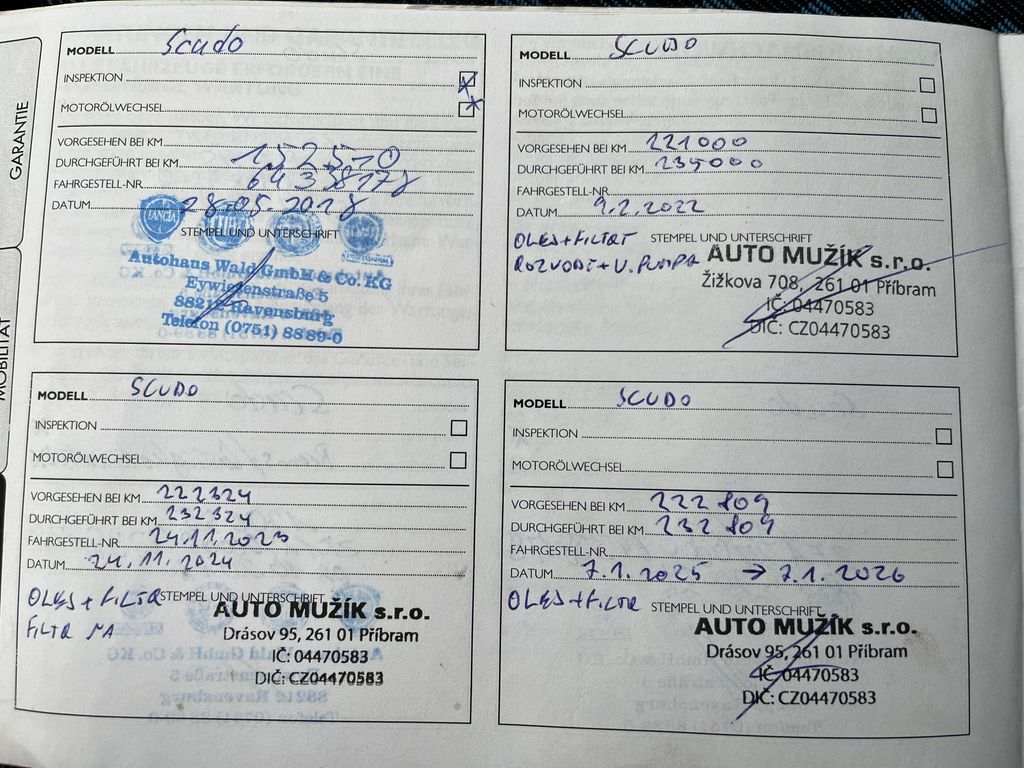 GARANTIE
MOBILITÄT
MODELL Scudo
INSPEKTION
MOTORÖLWECHSEL
VORGESEHEN BEI KM
DURCHGEFÜHRT BEI KM 152570
FAHRGESTELL-NR. 64338178
DATUM 28.05.2018
LANCIA
STEMPEL UND UNTERSCHRIFT
PROFESSIONAL
Autohaus Wald GmbH & Co. KG
Eywiesenstraße 5
88212 Ravensburg
Telefon (0751) 8889-0
MODELL SCUDO
INSPEKTION
MOTORÖLWECHSEL
VORGESEHEN BEI KM 221000
DURCHGEFÜHRT BEI KM 235000
FAHRGESTELL-NR.
DATUM 9.2.2022
OLEJ + FILTR STEMPEL UND UNTERSCHRIFT
ROZVODY + V. PUMPA AUTO MUŽÍK s.r.o.
Žižkova 708, 261 01 Příbram
IČ: 04470583
DIČ: CZ04470583
MODELL SCUDO
INSPEKTION
MOTORÖLWECHSEL
VORGESEHEN BEI KM 222324
DURCHGEFÜHRT BEI KM 232324
FAHRGESTELL-NR. 24.11.2023
DATUM 24.11.2024
OLEJ + FILTR STEMPEL UND UNTERSCHRIFT
FILTR NA AUTO MUŽÍK s.r.o.
Drásov 95, 261 01 Příbram
IČ: 04470583
DIČ: CZ04470583
MODELL SCUDO
INSPEKTION
MOTORÖLWECHSEL
VORGESEHEN BEI KM 222809
DURCHGEFÜHRT BEI KM 232809
FAHRGESTELL-NR.
DATUM 7.1.2025 → 7.1.2026
OLEJ + FILTR STEMPEL UND UNTERSCHRIFT
AUTO MUŽÍK s.r.o.
Drásov 95, 261 01 Příbram
IČ: 04470583
DIČ: CZ04470583